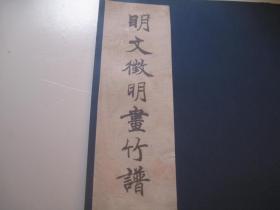 明文徵明畫竹譜